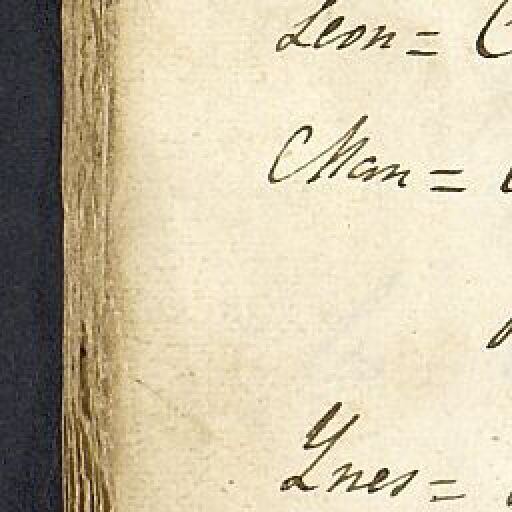 Leon=
Man=
Ynes=